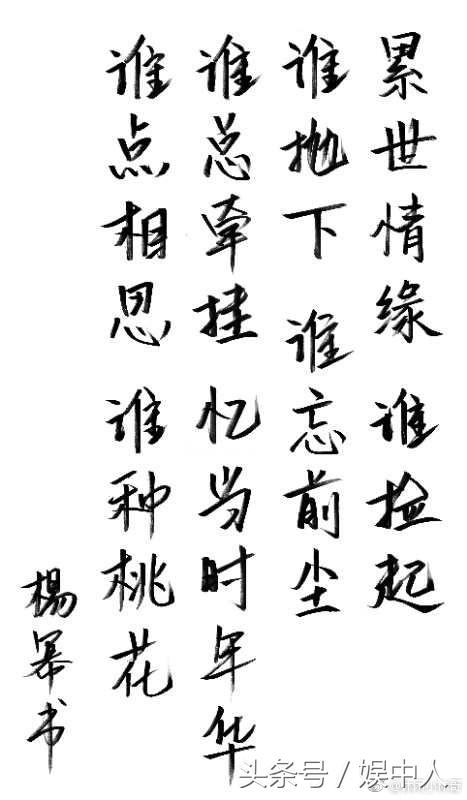 累世情缘 谁捡起
谁抛下 谁忘前尘
谁总牵挂 忆当时年华
谁点相思 谁种桃花
楊幂书
头条号/娱中人